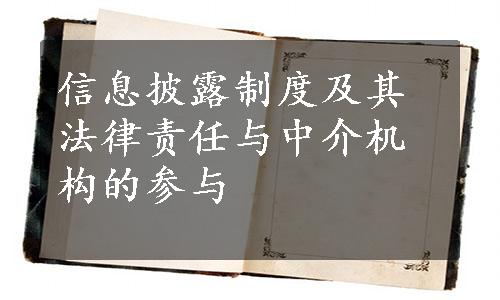 信息披露制度及其
法律责任与中介机
构的参与